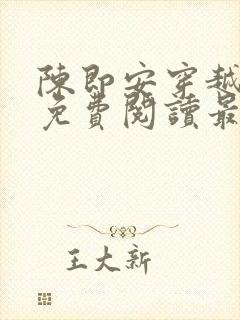 陳即安穿越
免費閱讀最
王大新